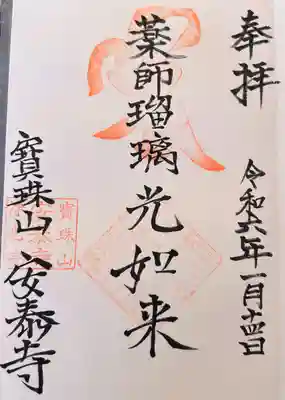 奉拝
令和六年一月十四日
薬師瑠璃光如来
寶珠山安泰寺
寶珠山